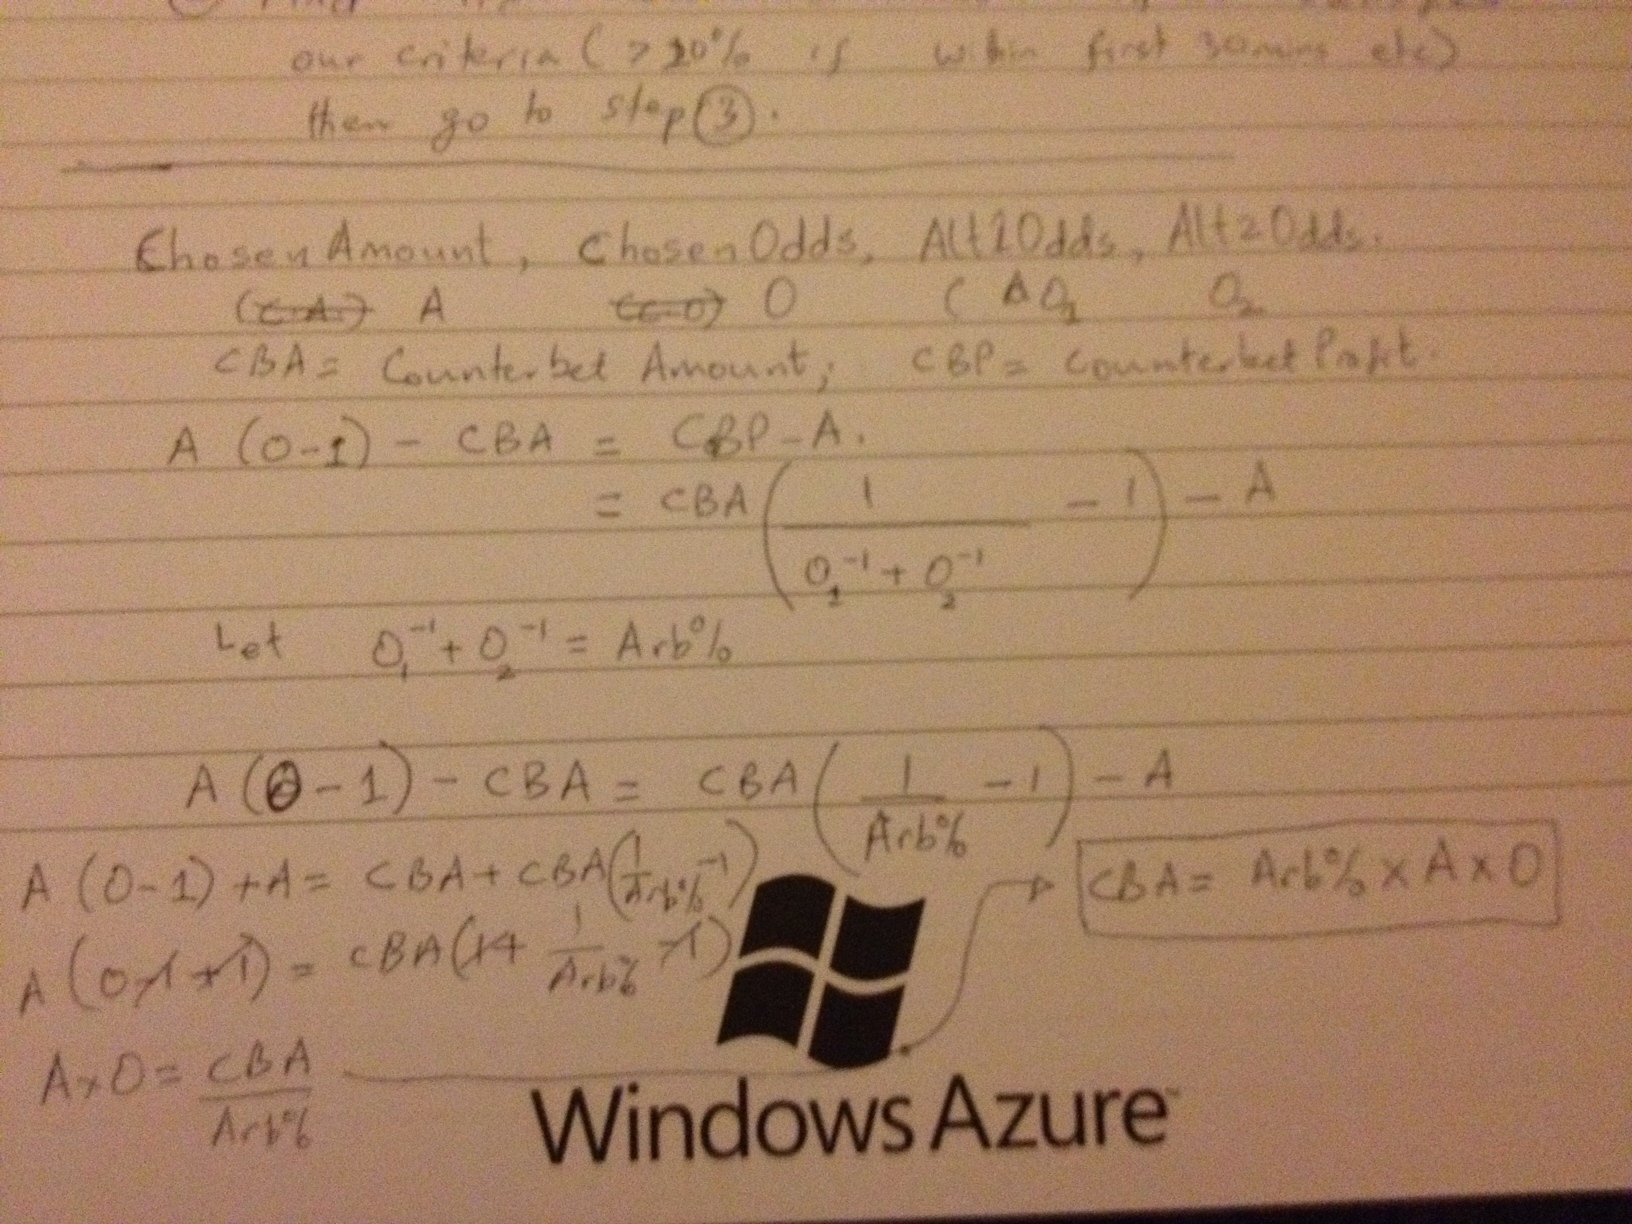 our criteria (>20% is within first
then go to step ③.
Chosen Amount, Chosen Odds, Alt1Odds, Alt2Odds.
A O ( AO₁ O₂
CBA = Counterbet Amount, CBP = Counterbet Profit.
A (O-1) - CBA = CBP - A.
= CBA ( 1 / (O₁⁻¹ + O₂⁻¹) - 1 ) - A
Let O₁⁻¹ + O₂⁻¹ = Arb%
A (O-1) - CBA = CBA ( 1 / Arb% - 1 ) - A
A (O-1) + A = CBA + CBA ( 1 / Arb% - 1 )
A (O-1+1) = CBA (1 + 1 / Arb% - 1)
A × O = CBA / Arb%
CBA = Arb% × A × O
Windows Azure™